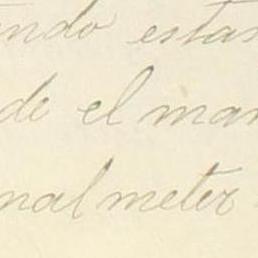 endo estas
de el man
nal meter